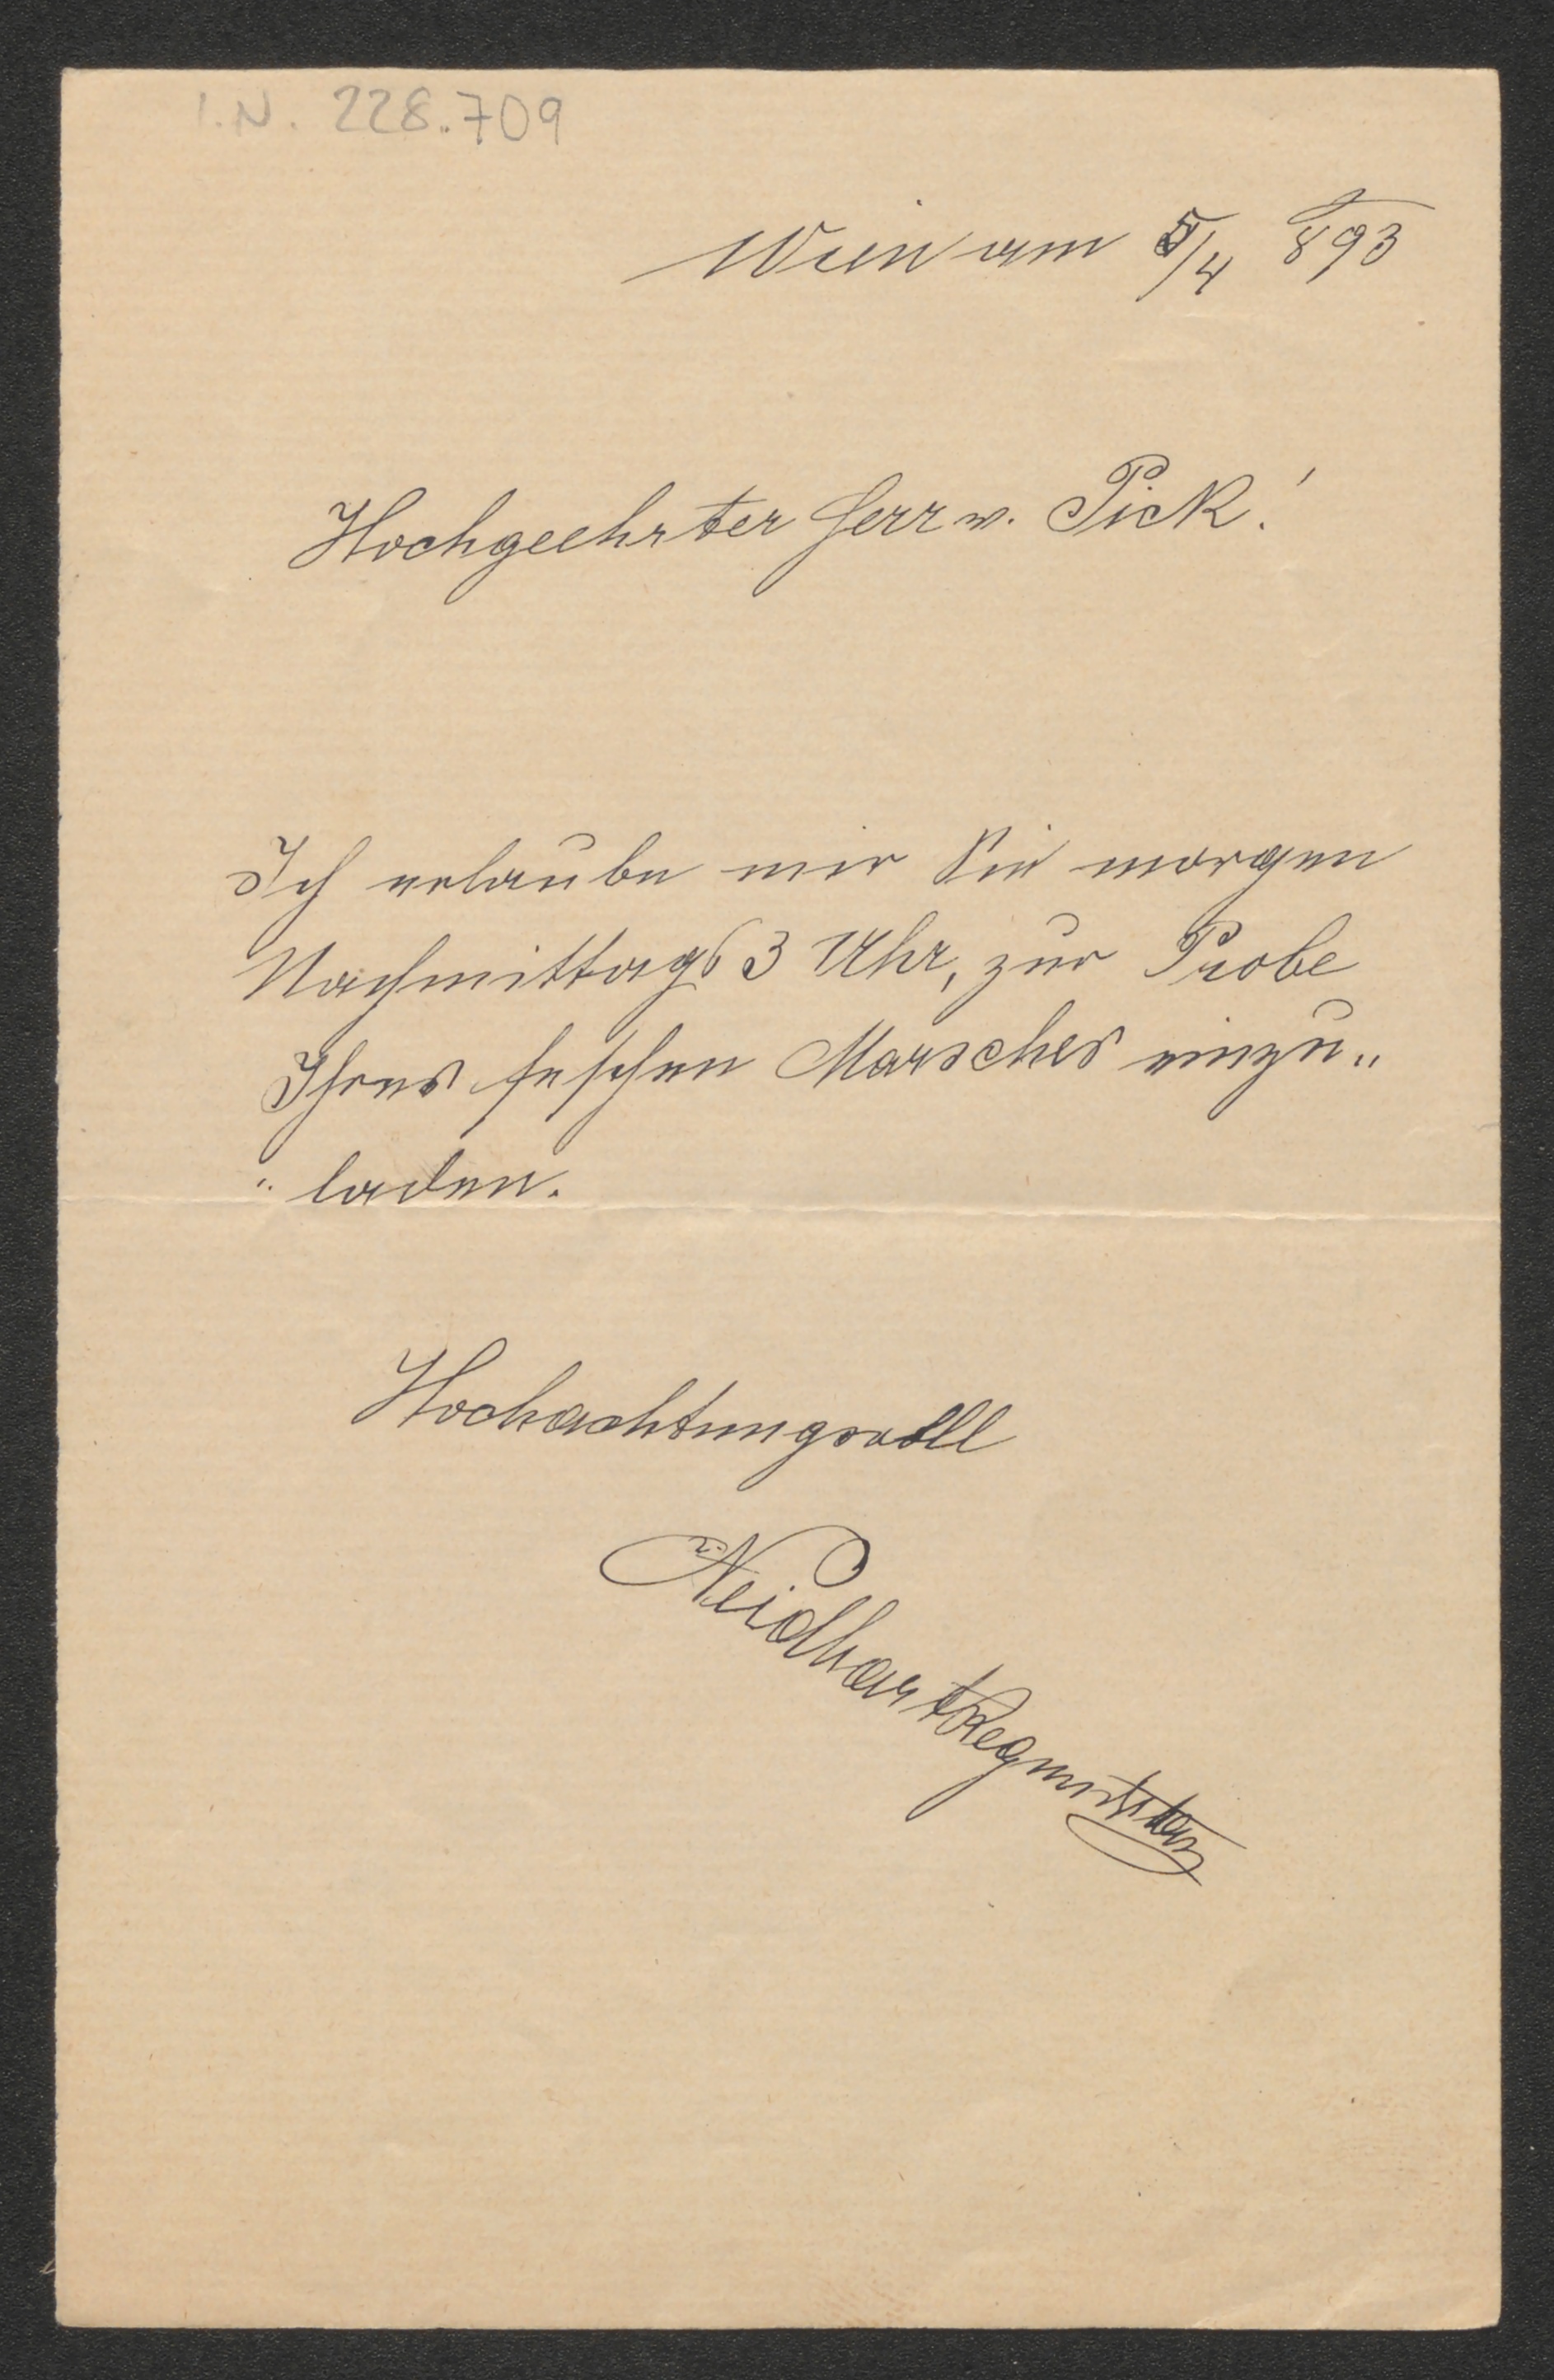 I.N. 228.709
Wien am 5/4 893
Hochgeehrter Herr v. Pick!
Ich erlaube mir Sie morgen
Nachmittags 3 Uhr, zur Probe
Ihres feschen Marsches einzu„
„laden.
Hochachtungsvoll
Neidhart